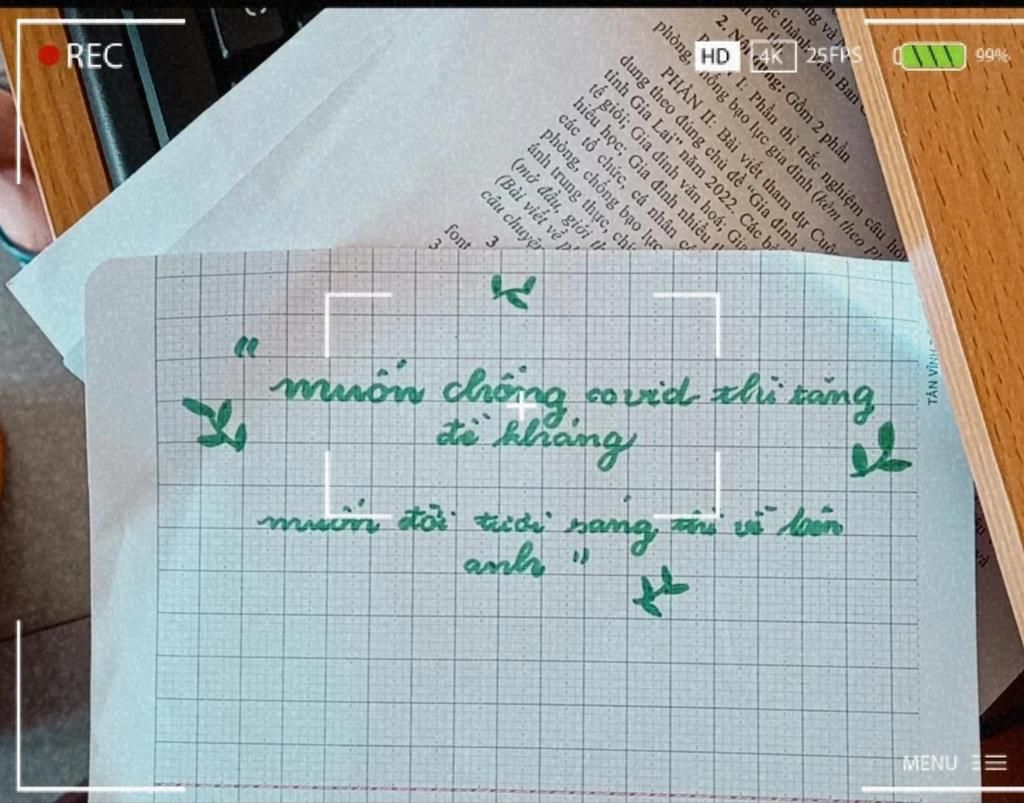 REC
HD 4K 25FPS 99%
2. Nội dung: Gồm 2 phần
I: Phần thi trắc nghiệm câu
phòng, chống bạo lực gia đình (kèm theo
PHẦN II: Bài viết tham dự Cuộc
dung theo đúng chủ đề "Gia đình
tỉnh Gia Lai" năm 2022. Các bài
tế giới; Gia đình văn hoá; Gia
hiếu học; Gia đình nhiều
các tổ chức, cá nhân
phòng, chống bạo lực
ánh trung thực,
(mở đầu, giới
(Bài viết về
câu chuyện
font
3
3
"
muốn chống covid thì tăng
đề kháng
muốn đời tươi sáng thì về bên
anh "
TÂN VĨNH
MENU